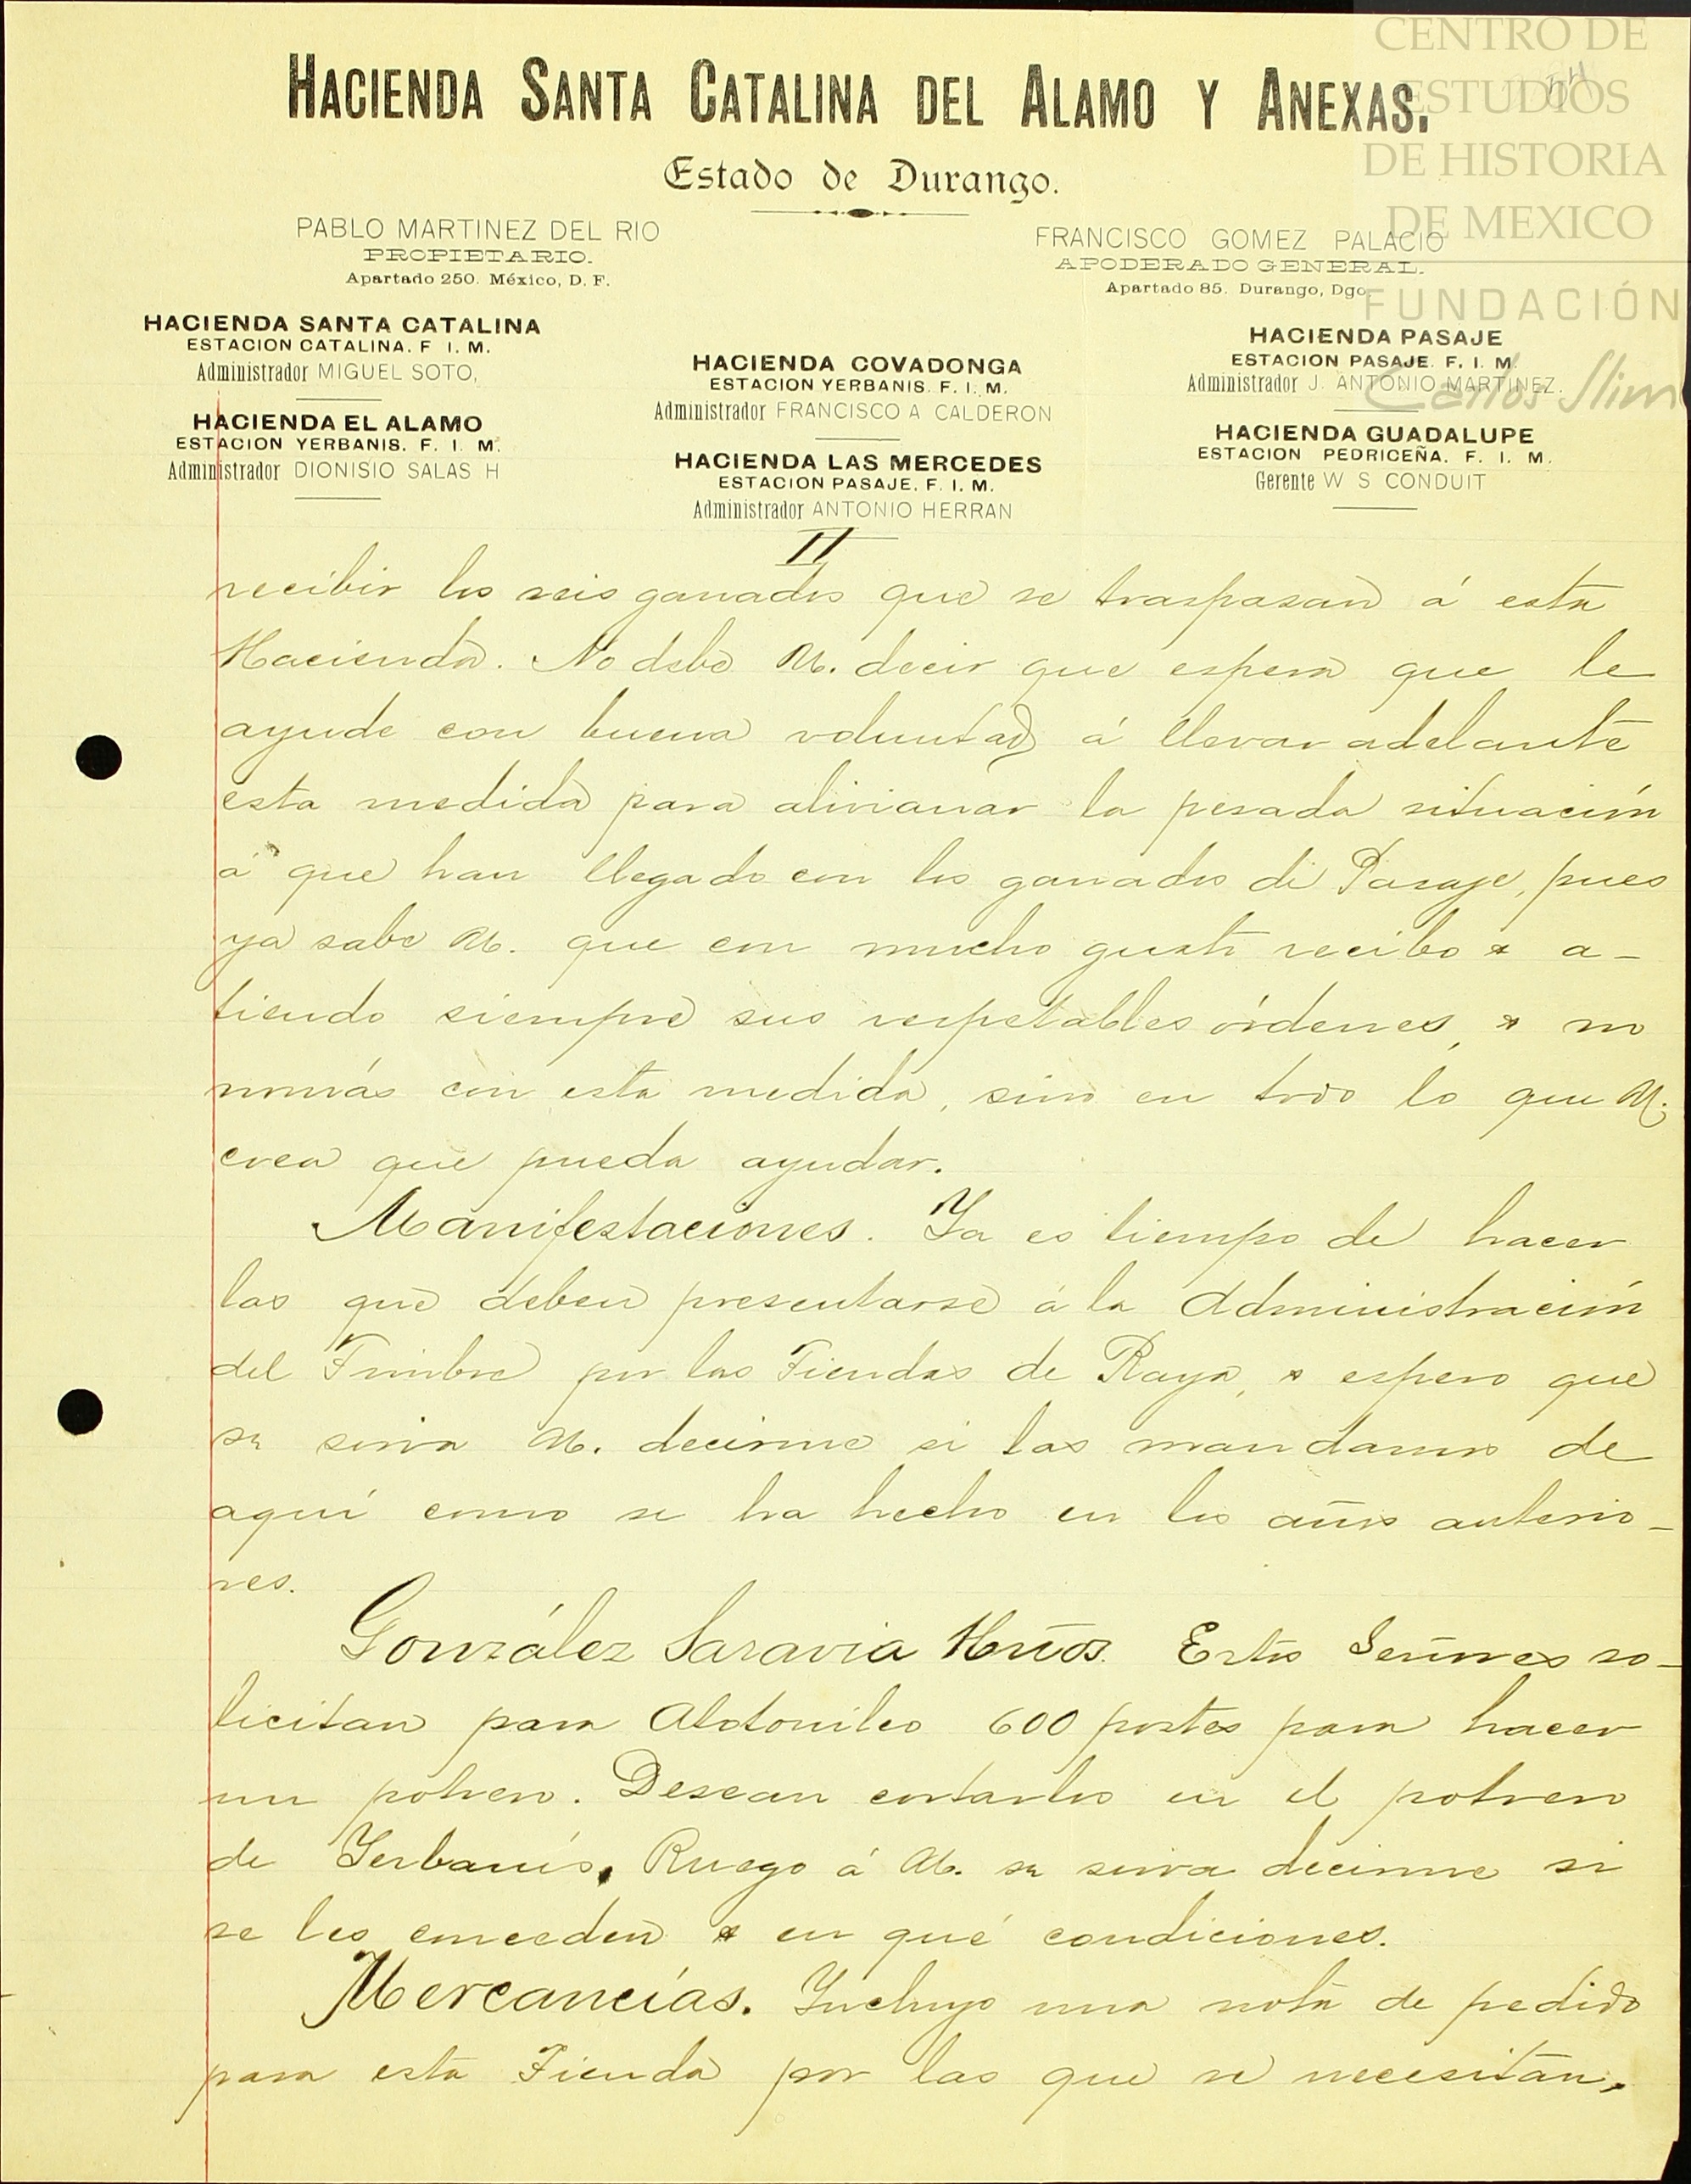 CENTRO DE
ESTUDIOS
DE HISTORIA
DE MEXICO
FUNDACIÓN
Carlos Slim
HACIENDA SANTA CATALINA DEL ALAMO Y ANEXAS.
Estado de Durango.
PABLO MARTINEZ DEL RIO
PROPIETARIO.
Apartado 250. México, D. F.
FRANCISCO GOMEZ PALACIO
APODERADO GENERAL.
Apartado 85. Durango, Dgo.
HACIENDA SANTA CATALINA
ESTACION CATALINA. F. I. M.
Administrador MIGUEL SOTO,
HACIENDA EL ALAMO
ESTACION YERBANIS. F. I. M.
Administrador DIONISIO SALAS H
HACIENDA COVADONGA
ESTACION YERBANIS. F. I. M.
Administrador FRANCISCO A CALDERON
HACIENDA LAS MERCEDES
ESTACION PASAJE. F. I. M.
Administrador ANTONIO HERRAN
HACIENDA PASAJE
ESTACION PASAJE. F. I. M
Administrador J. ANTONIO MARTINEZ.
HACIENDA GUADALUPE
ESTACION PEDRICEÑA. F. I. M.
Gerente W S CONDUIT
II
recibir los seis ganados que se traspasan á esta
Hacienda. No debe U. decir que espera que le
ayude con buena voluntad á llevar adelante
esta medida para alivianar la pesada situación
á que han llegado con los ganados di Pasaje, pues
ya sabe U. que con mucho gusto recibo & a-
tiendo siempre sus respetables órdenes, & no
nomás con esta medida, sino en todo lo que U.
crea que pueda ayudar.
Manifestaciones. Ya es tiempo de hacer
las que deben presentarse á la Administración
del Timbre por las Tiendas de Raya, & espero que
se sirva U. decirme si las mandamos de
aquí como se ha hecho en los años anterio-
res.
González Saravia Hnos. Estos Señores so-
licitan para Atotonilco 600 postes para hacer
un potrero. Desean cortarlos en el potrero
de Yerbanís. Ruego á U. se sirva decirme si
se les conceden & en qué condiciones.
Mercancías. Incluyo una nota de pedido
para esta Tienda por las que se necesitan,